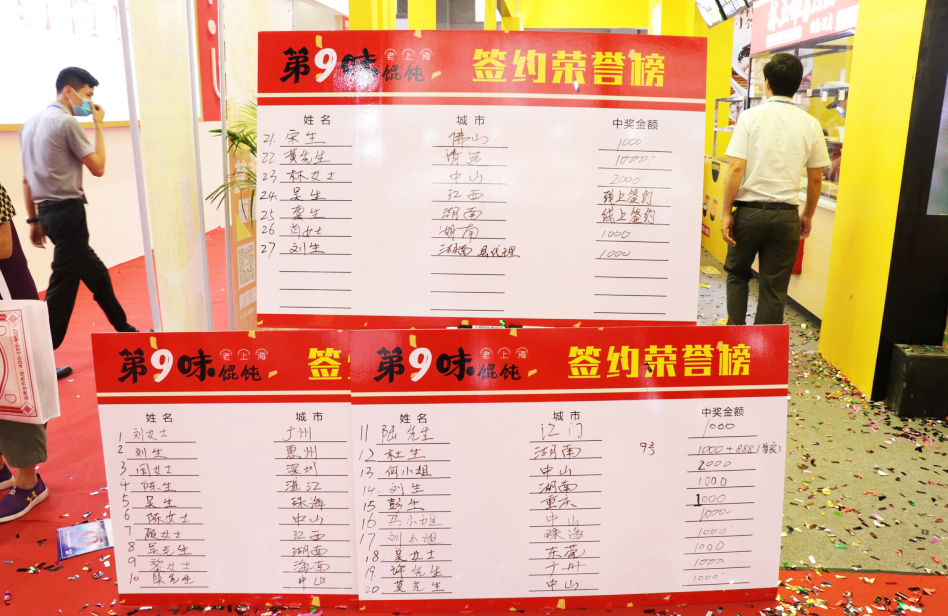 第9味 老上海 馄饨 签约荣誉榜
姓名 城市 中奖金额
21. 宋生 佛山 1000
22 黄先生 清远 1000.
23 林女士 中山 2000
24. 吴生 江西 线上签约
25 龚生 湖南 线上签约
26 闫女士 湖南 1000
27 刘生 湖南 县代理 1000
第9味 老上海 馄饨 签
姓名 城市
1 刘女士 广州
2 刘生 惠州
3 闫女士 深圳
4 陈生 湛江
5 吴生 珠海
6 陈女士 中山
7 女士 江西
8 吴先生 湖南
9 黎女士 海南
10 陈先生 中山
第9味 老上海 馄饨 签约荣誉榜
姓名 城市 中奖金额
11 陆先生 江门 1000
12 杜生 湖南 9号 1000+888
13 何小姐 中山 2000
14. 刘生 湖南 1000
15 彭生 重庆 1000
16 马小姐 中山 1000
17 刘小姐 珠海 1000
18 吴女士 东莞 1000
19. 先生 广州 1000
20 莫先生 中山 1000